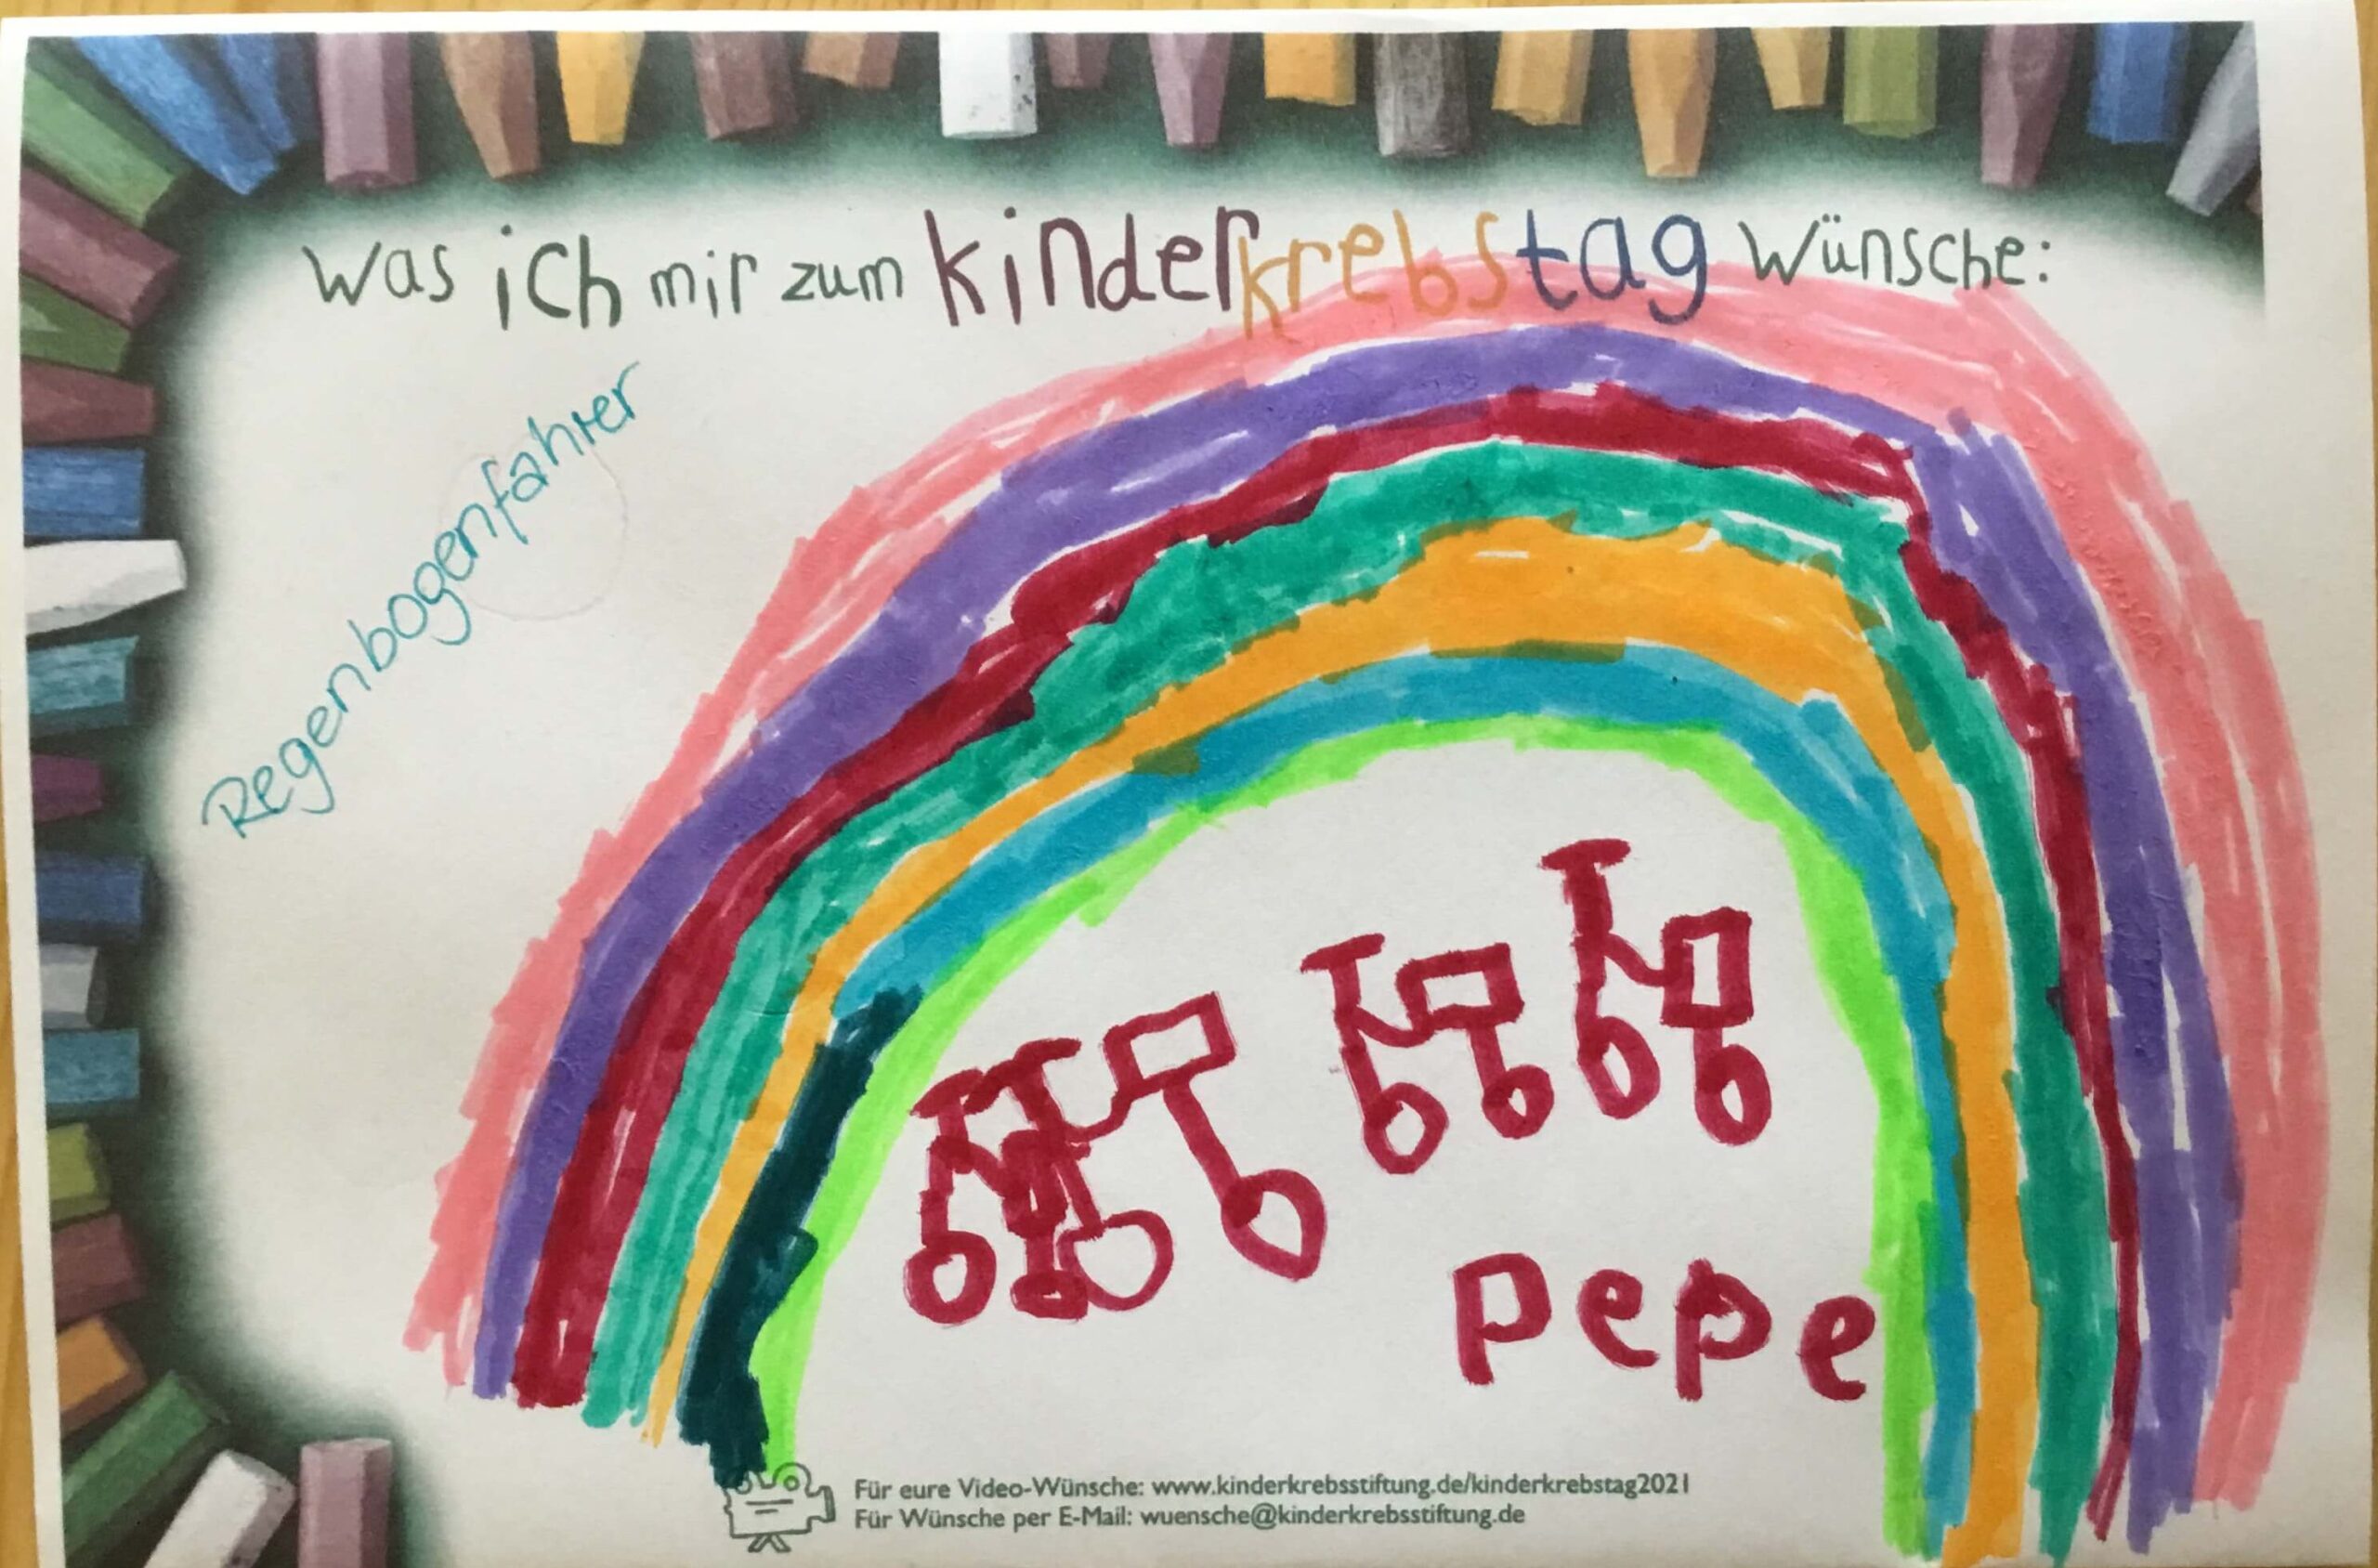 Was ich mir zum kinderkrebstag wünsche:
Regenbogenfahrer
pepe
Für eure Video-Wünsche: www.kinderkrebsstiftung.de/kinderkrebstag2021
Für Wünsche per E-Mail: wuensche@kinderkrebsstiftung.de